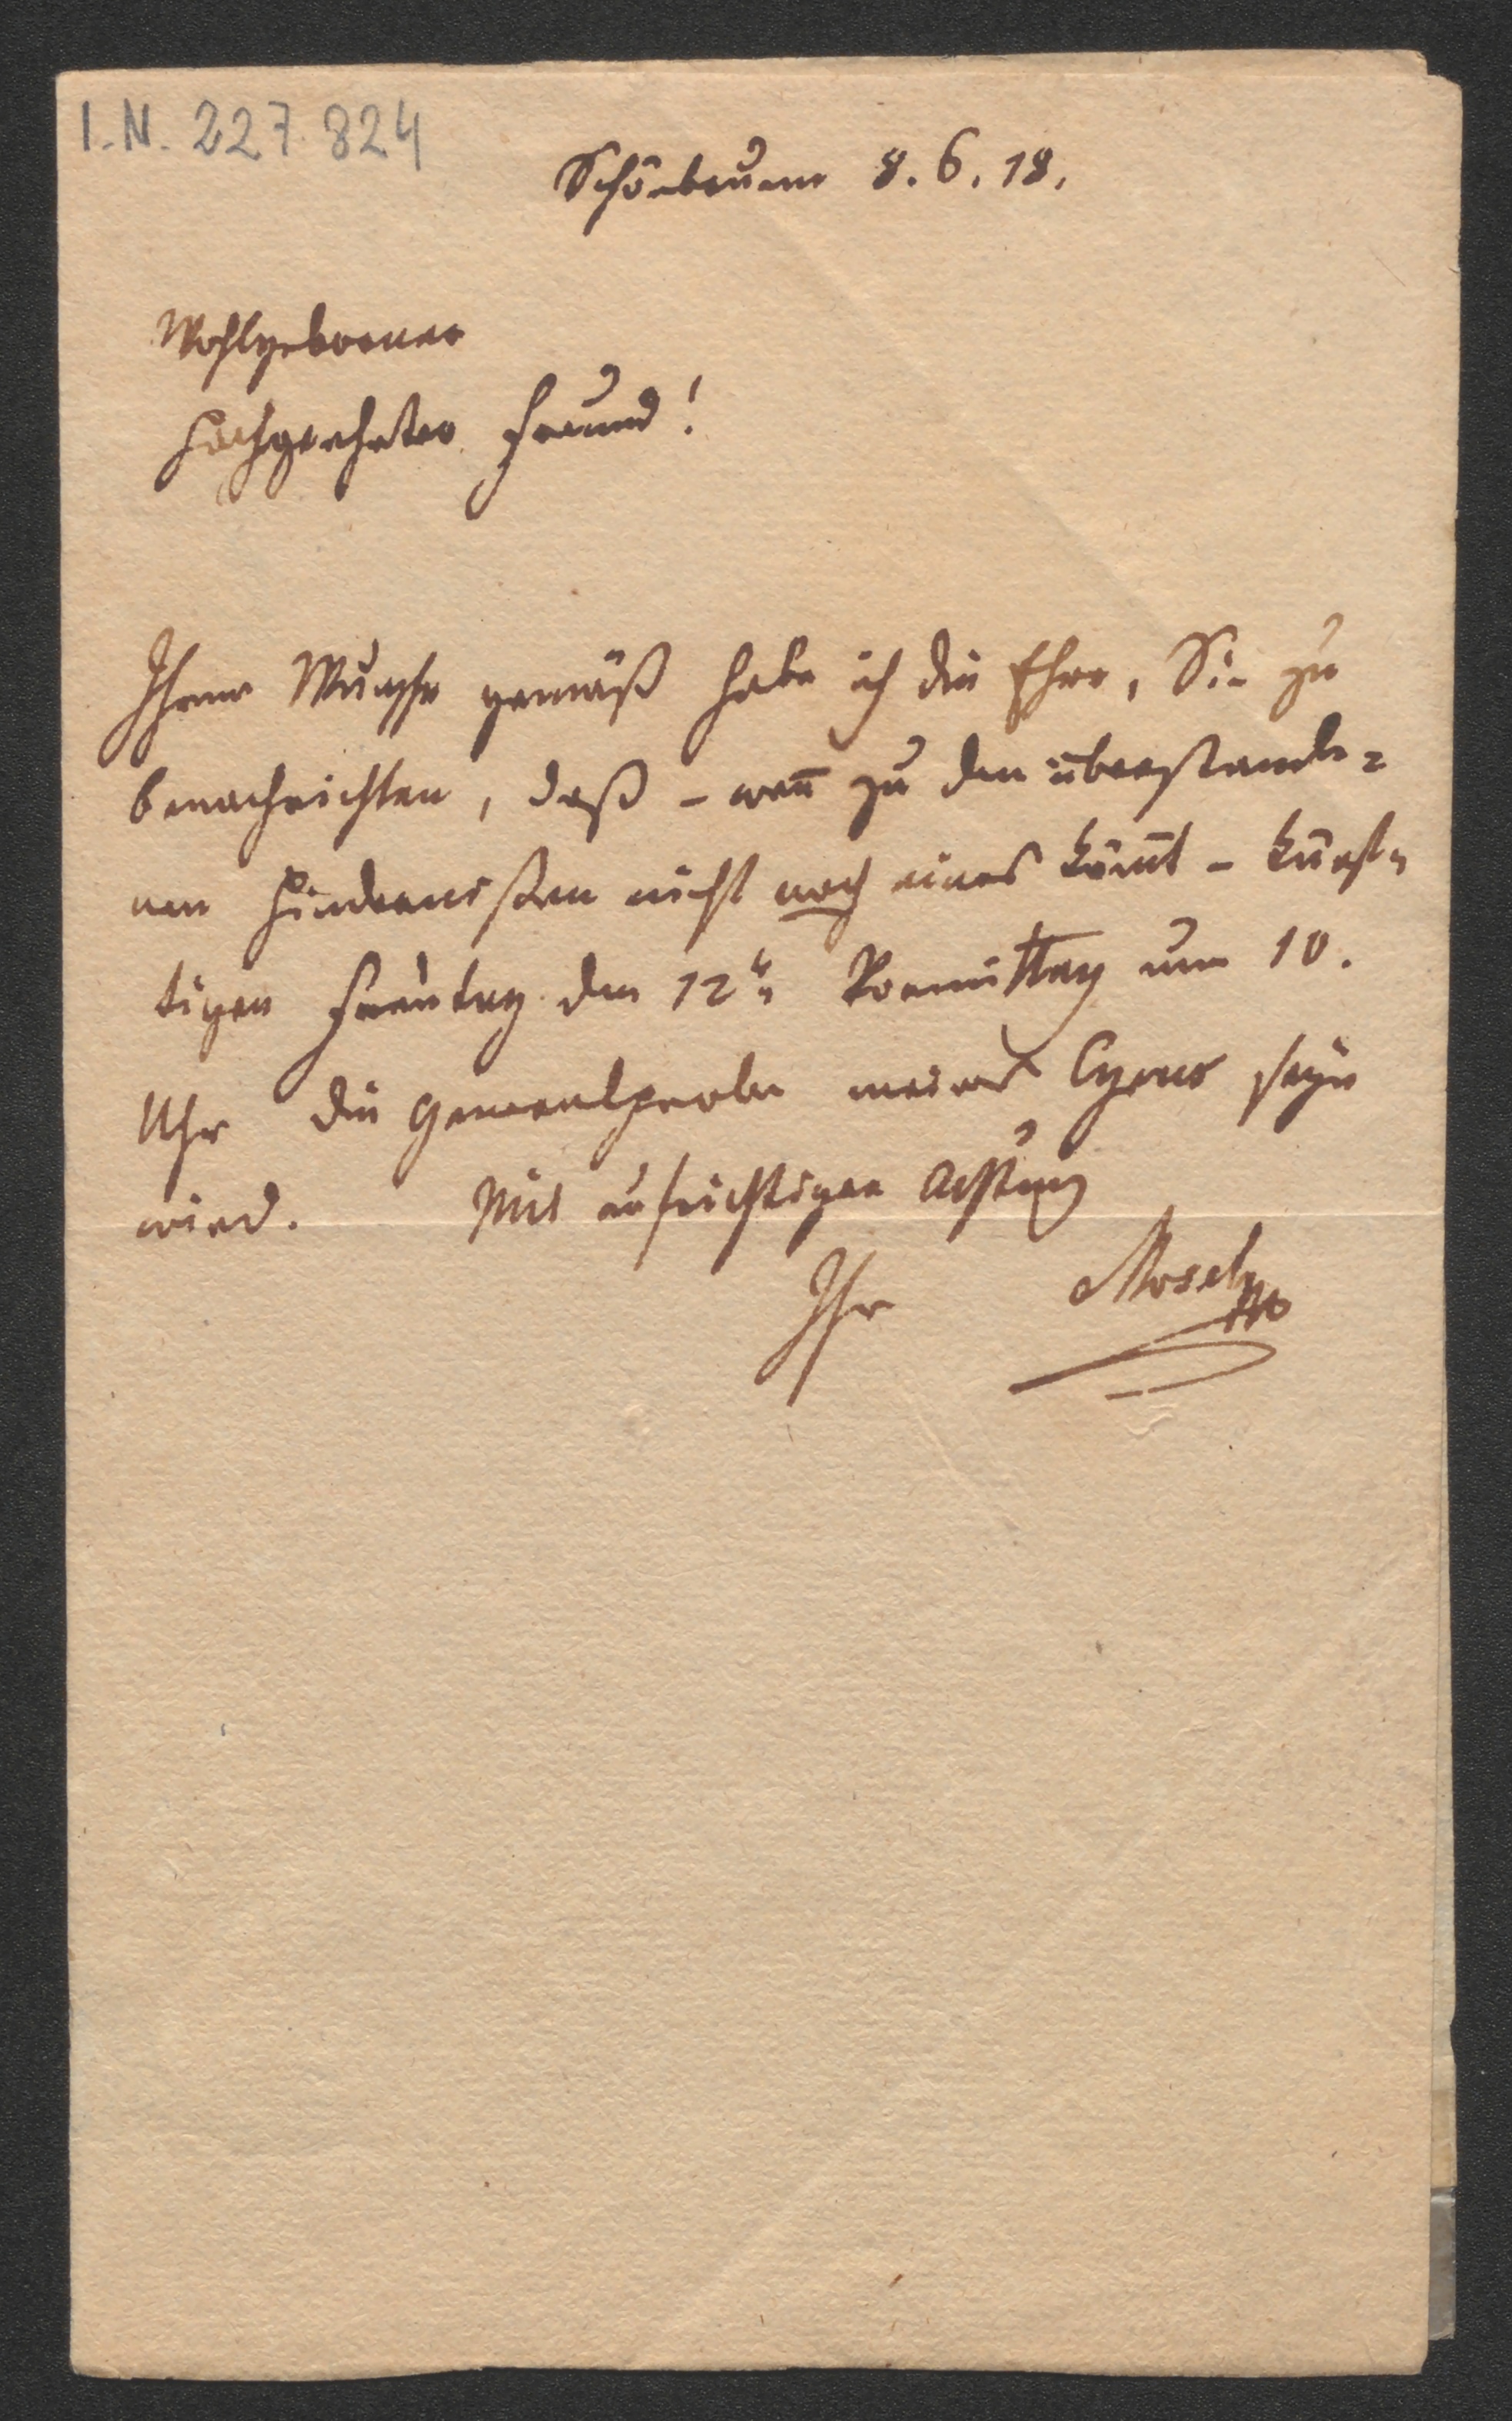 I.N. 227.824
Schönbrunn 8. 6. 18.
Wohlgeborner
Hochgeehrter Freund!
Ihrem Wunsche gemäß habe ich die Ehre, Sie zu
benachrichten, daß – wen̅ zu den überstande=
nen Hindernißen nicht noch eines köm̅t – künf=
tigen Freytag den 12t Vormittag um 10.
Uhr die Generalprobe meines Cyrus seyn
wird. Mit aufrichtiger Achtung
Ihr Mosel